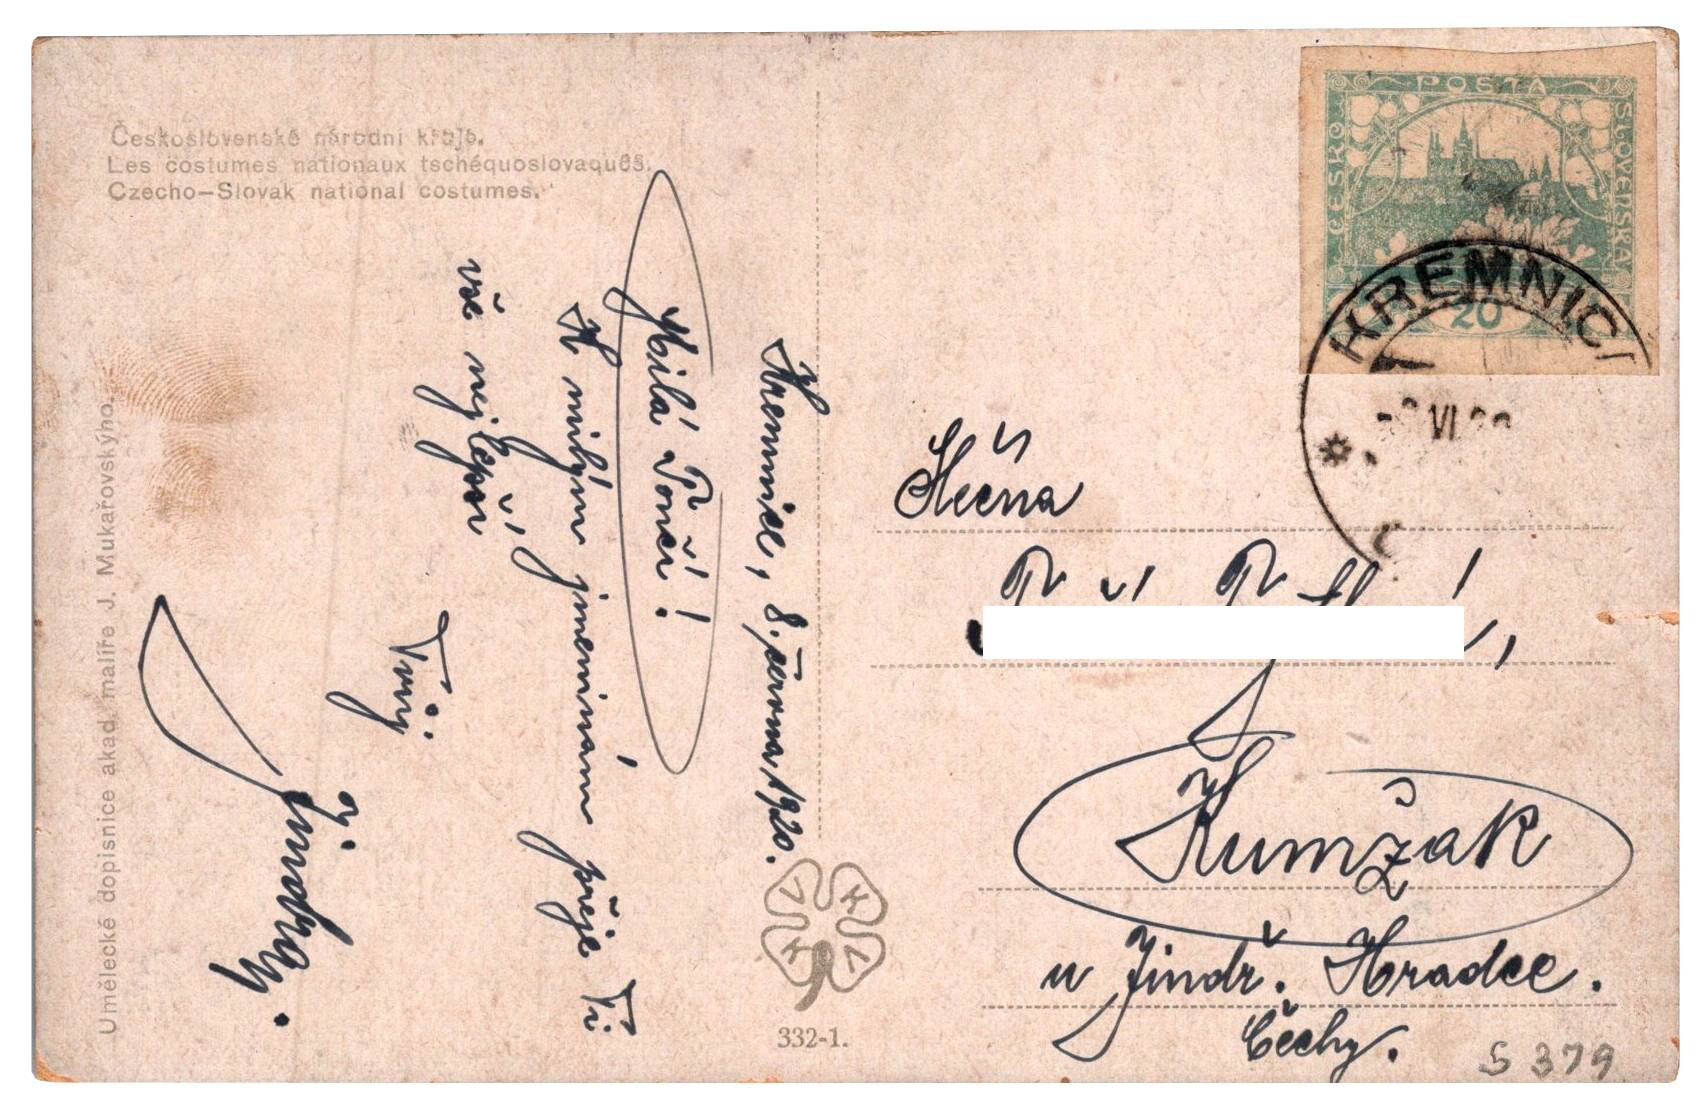 Československé národní kroje.
Les costumes nationaux tschéquoslovaques.
Czecho-Slovak national costumes.
Umělecké dopisnice akad. malíře J. Mukařovskýho.
Kremnica, 8. června 1920.
Milá Tonči!
K milým jmeninám přeje Ti
vše nejlepší
Tvůj
POSTA
ČESKO
SLOVENSKÁ
20
KREMNIC
VI
Slečna
Kumžak
u Jindř. Hradce.
Čechy.
V K V H
332-1.
5 379